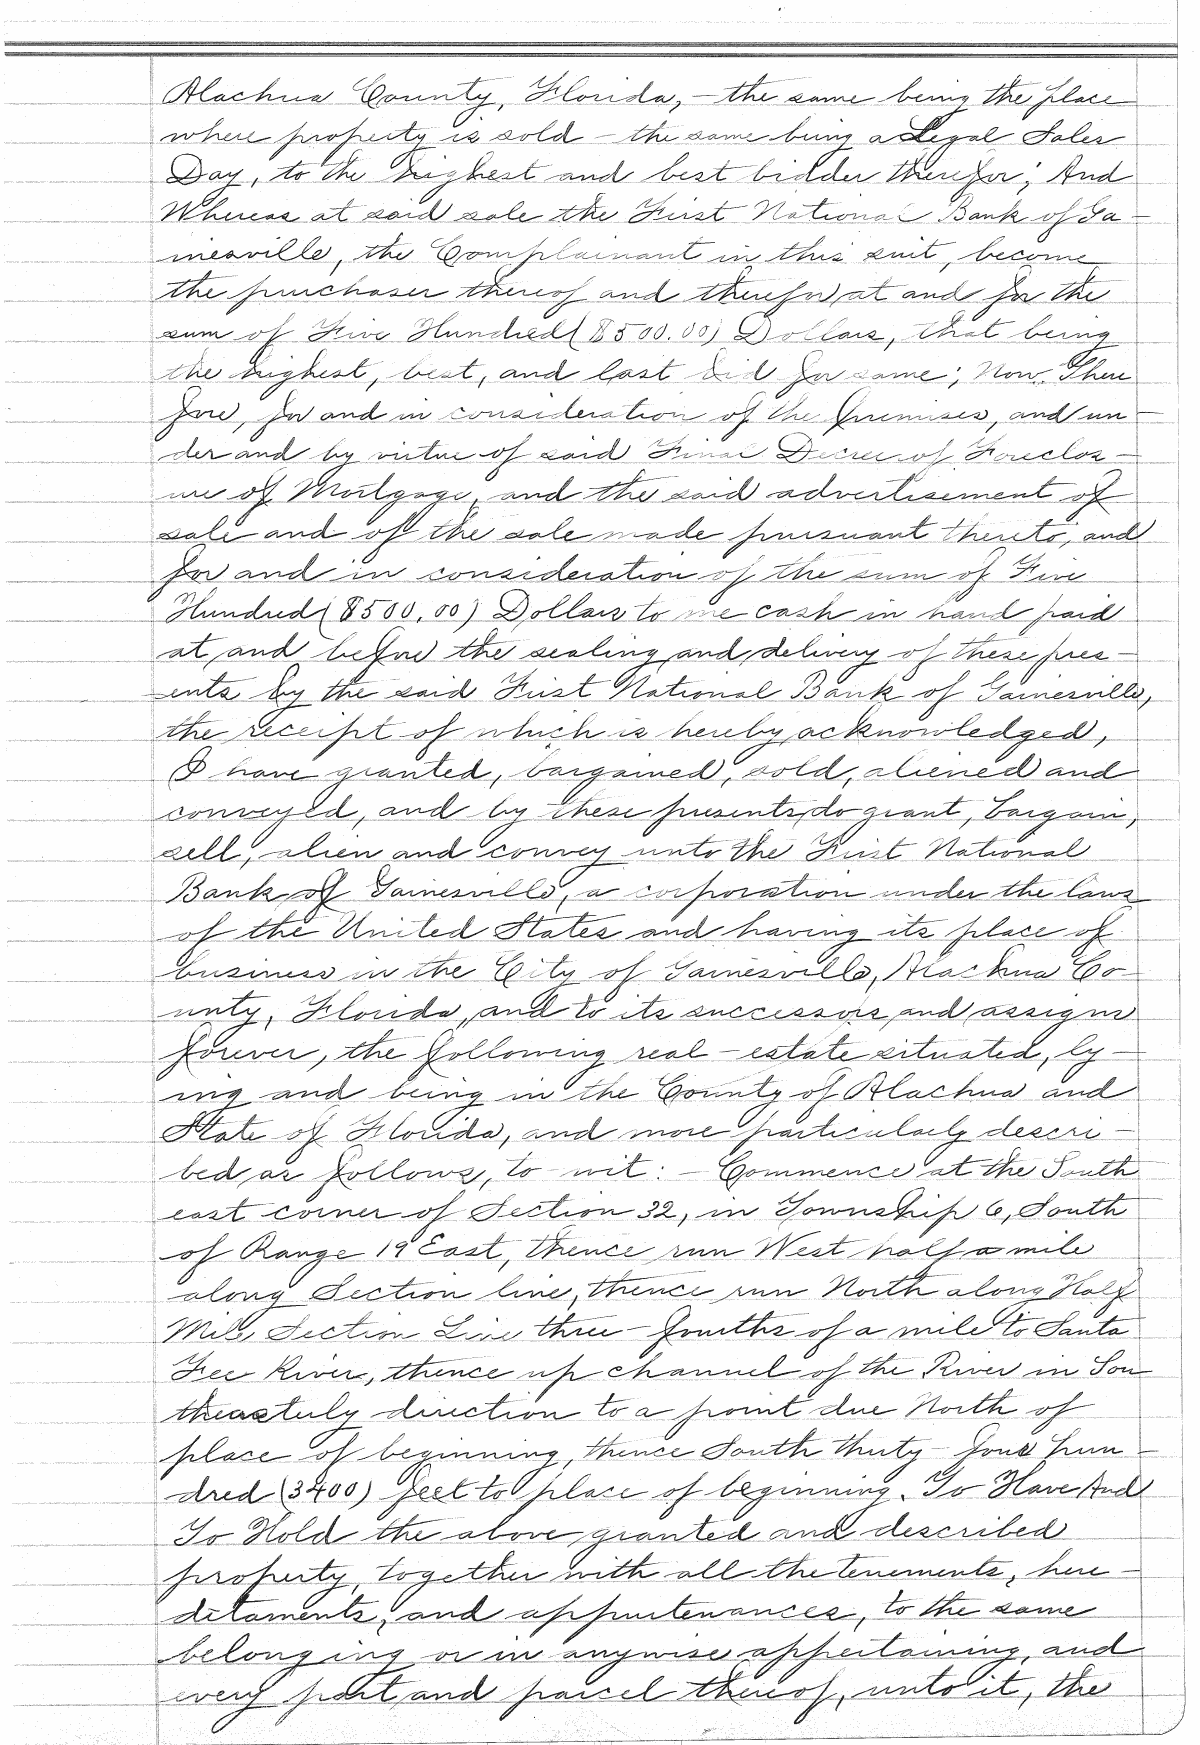 Alachua County, Florida, - the same being the place
where property is sold - the same being a Legal Sales
Day, to the highest and best bidder therefor; And
Whereas at said sale the First National Bank of Ga -
inesville, the Complainant in this suit, become
the purchaser thereof and therefor, at and for the
sum of Five Hundred ($500.00) Dollars, that being
the highest, best, and last bid for same; Now, There
fore, for and in consideration of the premises, and un -
der and by virtue of said Final Decree of Foreclos -
ure of Mortgage, and the said advertisement of
sale and of the sale made pursuant thereto, and
for and in consideration of the sum of Five
Hundred ($500.00) Dollars to me cash in hand paid
at, and before the sealing and delivery of these pres -
ents by the said First National Bank of Gainesville,
the receipt of which is hereby acknowledged,
I have granted, bargained, sold, aliened and
conveyed, and by these presents, do grant, bargain,
sell, alien and convey unto the First National
Bank of Gainesville, a corporation under the laws
of the United States and having its place of
business in the City of Gainesville, Alachua Co -
unty, Florida, and to its successors and assigns
forever, the following real - estate situated, ly -
ing and being in the County of Alachua and
State of Florida, and more particularly descri -
bed as follows, to - wit: - Commence at the South
east corner of Section 32, in Township 6, South
of Range 19 East, thence run West half a mile
along Section line, thence run North along Half
Mile Section Line three - fourths of a mile to Santa
Fee River, thence up channel of the River in Sou
theasterly direction to a point due North of
place of beginning, thence South thirty - four hun -
dred (3400) feet to place of beginning. To Have And
To Hold the above granted and described
property, together with all the tenements, here -
ditaments, and appurtenances, to the same
belonging or in anywise appertaining, and
every part and parcel thereof, unto it, the